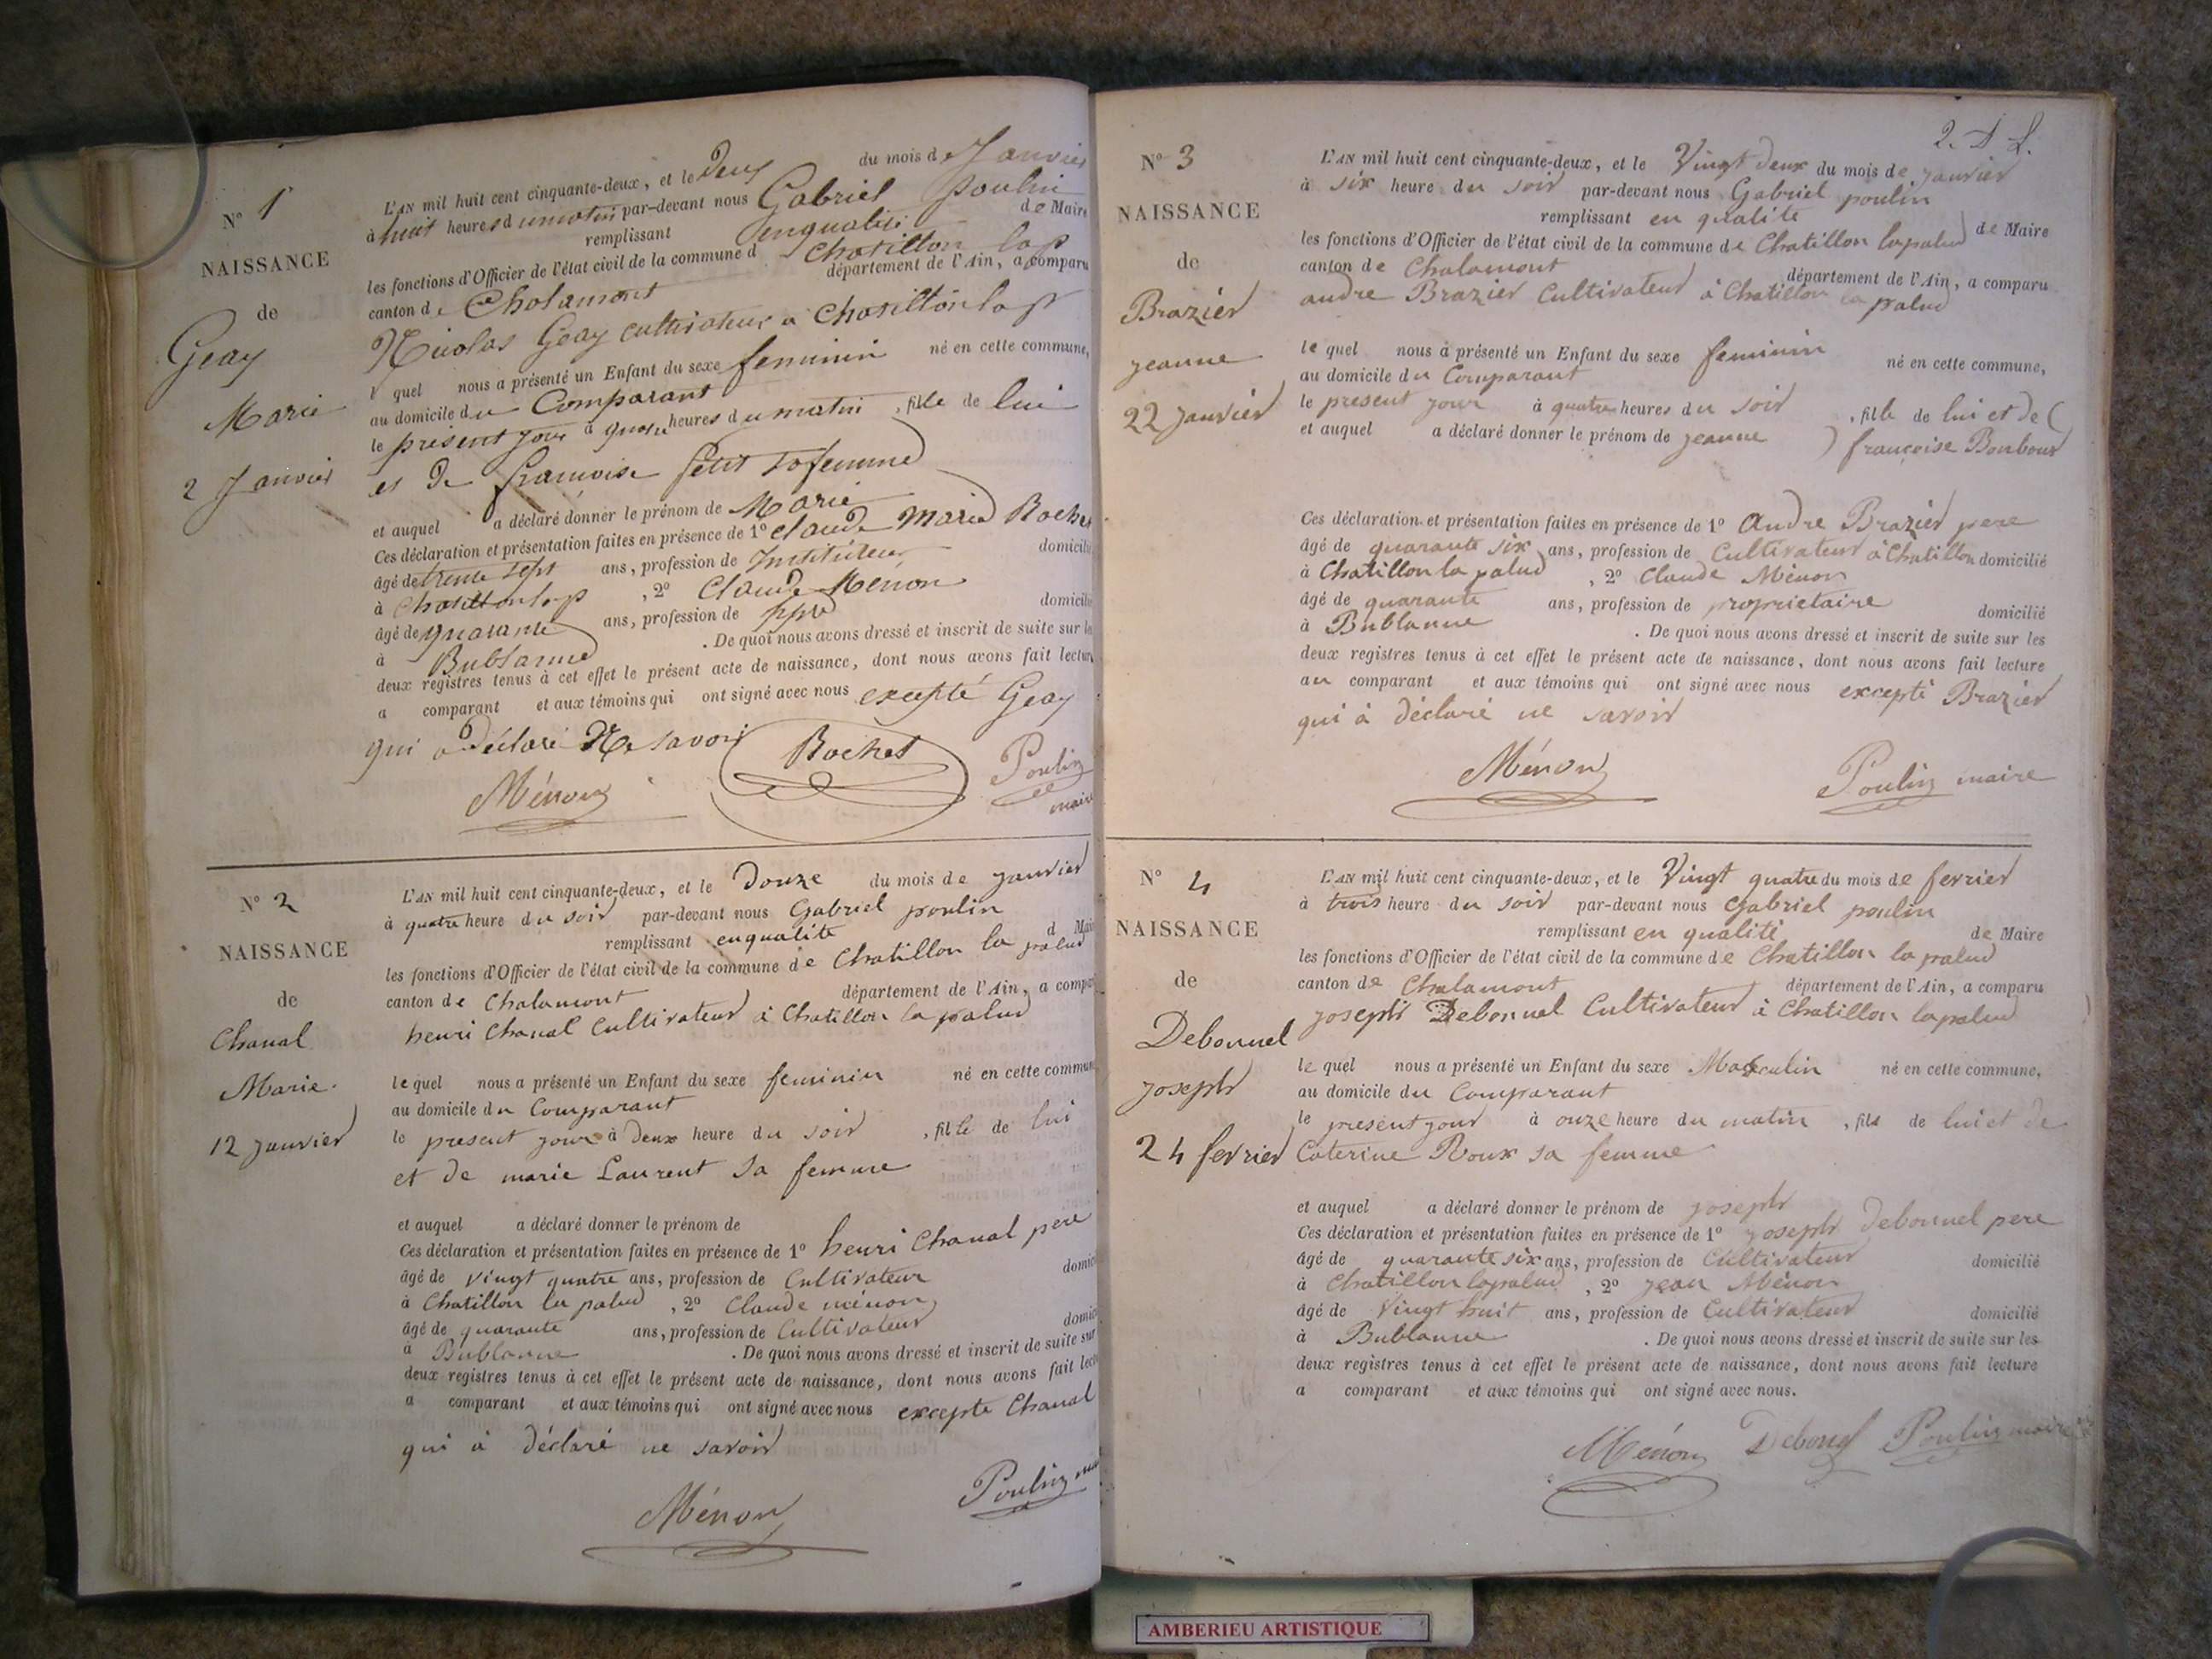 N° 1
NAISSANCE
de
Geay
Marie
2 Janvier
L'AN mil huit cent cinquante-deux, et le Deux du mois de Janvier
à huit heures du matin par-devant nous Gabriel poulin
remplissant enqualité de Maire
les fonctions d'Officier de l'état civil de la commune d Chatillon lap
canton de Chalamont département de l'Ain, a comparu
Nicolas Geay cultivateur a Chatillon la p
l quel nous a présenté un Enfant du sexe feminin né en cette commune,
au domicile du Comparant
le présent jour à quatre heures du matin, fille de lui
et de francoise petit sa femme
et auquel a déclaré donner le prénom de Marie
Ces déclaration et présentation faites en présence de 1° claude Marie Rochet
âgé de trente sept ans, profession de Instituteur domicilié
à Chatillon la p, 2° Claude Menon
âgé de quarante ans, profession de ppre domicilié
à Bublanne. De quoi nous avons dressé et inscrit de suite sur les
deux registres tenus à cet effet le présent acte de naissance, dont nous avons fait lecture
a comparant et aux témoins qui ont signé avec nous excepté Geay
qui a Déclaré Ne savoir
Ménon Rochet Poulin
maire
N° 2
NAISSANCE
de
Chanal
Marie.
12 janvier
L'AN mil huit cent cinquante-deux, et le Douze du mois de janvier
à quatre heure du soir par-devant nous Gabriel poulin
remplissant enqualité d Maire
les fonctions d'Officier de l'état civil de la commune de Chatillon la palud
canton de Chalamont département de l'Ain, a comparu
henri Chanal Cultivateur à Chatillon la palud
le quel nous a présenté un Enfant du sexe feminin né en cette commune
au domicile du Comparant
le present jour à deux heure du soir, fille de lui
et de marie Laurent sa femme
et auquel a déclaré donner le prénom de
Ces déclaration et présentation faites en présence de 1° henri Chanal pere
âgé de vingt quatre ans, profession de Cultivateur domicilié
à Chatillon la palud, 2° Claude ménon
âgé de quarante ans, profession de Cultivateur domicilié
à Bublanne. De quoi nous avons dressé et inscrit de suite sur
deux registres tenus à cet effet le présent acte de naissance, dont nous avons fait lecture
a comparant et aux témoins qui ont signé avec nous excepte Chanal
qui à déclaré ne savoir
Ménon Poulin
2.
N° 3
NAISSANCE
de
Brazier
jeanne
22 janvier
L'AN mil huit cent cinquante-deux, et le Vingt deux du mois de janvier
à six heure du soir par-devant nous Gabriel poulin
remplissant en qualité de Maire
les fonctions d'Officier de l'état civil de la commune de Chatillon lapalud
canton de Chalamont département de l'Ain, a comparu
andre Brazier Cultivateur à Chatillon la palud
le quel nous a présenté un Enfant du sexe feminin né en cette commune,
au domicile du Comparant
le present jour à quatre heures du soir, fille de lui et de (
et auquel a déclaré donner le prénom de jeanne ) françoise Bonbour
Ces déclaration et présentation faites en présence de 1° andre Brazier pere
âgé de quarante six ans, profession de Cultivateur à Chatillon domicilié
à Chatillon la palud, 2° Claude Ménon
âgé de quarante ans, profession de proprietaire domicilié
à Bublanne. De quoi nous avons dressé et inscrit de suite sur les
deux registres tenus à cet effet le présent acte de naissance, dont nous avons fait lecture
au comparant et aux témoins qui ont signé avec nous excepté Brazier
qui à déclaré ne savoir
Ménon Poulin maire
N° 4
NAISSANCE
de
Debonnel
joseph
24 fevrier
L'AN mil huit cent cinquante-deux, et le Vingt quatre du mois de fevrier
à trois heure du soir par-devant nous Gabriel poulin
remplissant en qualité de Maire
les fonctions d'Officier de l'état civil de la commune de Chatillon la palud
canton de Chalamont département de l'Ain, a comparu
joseph Debonnel Cultivateur à Chatillon lapalud
le quel nous a présenté un Enfant du sexe Masculin né en cette commune,
au domicile du Comparant
le present jour à onze heure du matin, fils de lui et de
Caterine Roux sa femme
et auquel a déclaré donner le prénom de joseph
Ces déclaration et présentation faites en présence de 1° joseph debonnel pere
âgé de quarante six ans, profession de Cultivateur domicilié
à Chatillon lapalud, 2° jean Ménon
âgé de Vingt huit ans, profession de Cultivateur domicilié
à Bublanne. De quoi nous avons dressé et inscrit de suite sur les
deux registres tenus à cet effet le présent acte de naissance, dont nous avons fait lecture
a comparant et aux témoins qui ont signé avec nous.
Ménon Debonel Poulin maire
AMBERIEU ARTISTIQUE